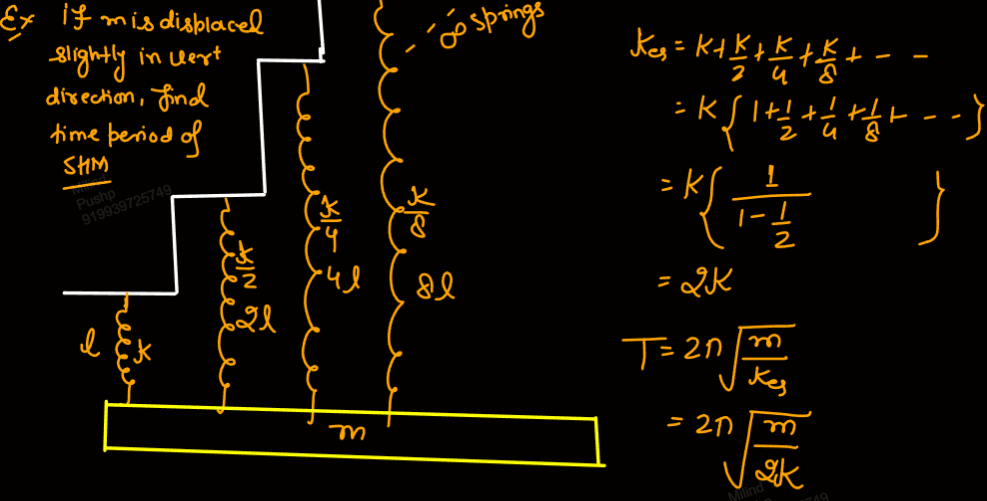 Ex If m is displaced
slightly in vert
direction, find
time period of
SHM
Milind
Pushp
919939725749
∞ springs
l K
K/2
2l
K/4
4l
K/8
8l
m
Keq = K + K/2 + K/4 + K/8 + - - -
= K { 1 + 1/2 + 1/4 + 1/8 + - - - }
= K { 1/(1 - 1/2) }
= 2K
T = 2π √(m/Keq)
= 2π √(m/2K)
Milind